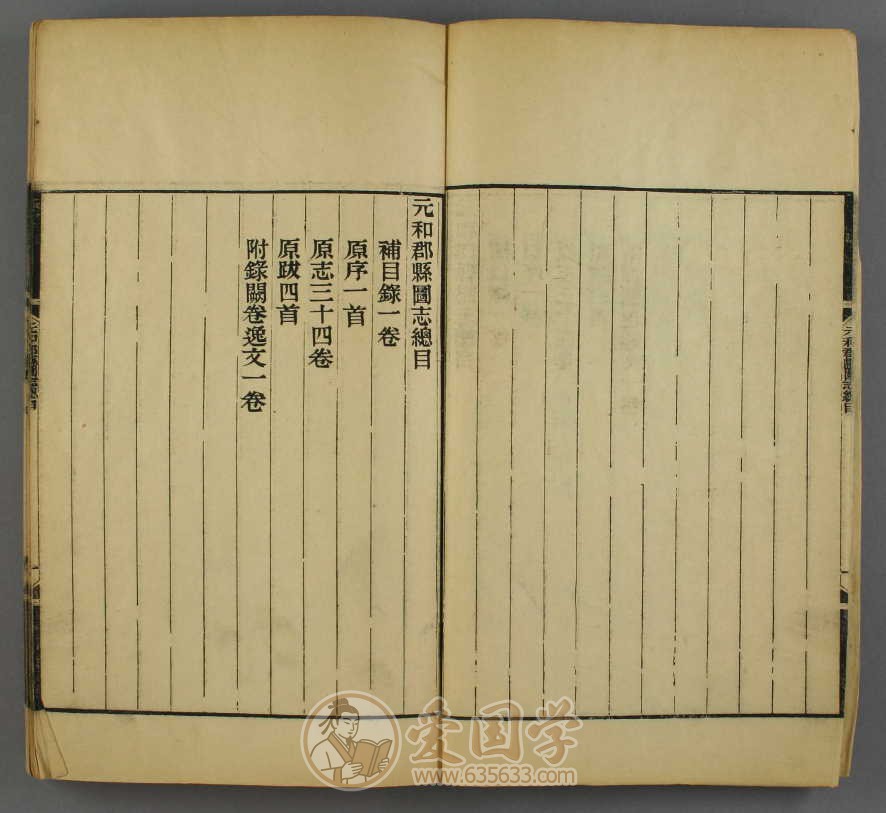 元和郡縣圖志總目
補目錄一卷
原序一首
原志三十四卷
原跋四首
附錄闕卷逸文一卷
元和郡縣圖志總目
元和郡縣圖志總目
爱国学
www.635633.com